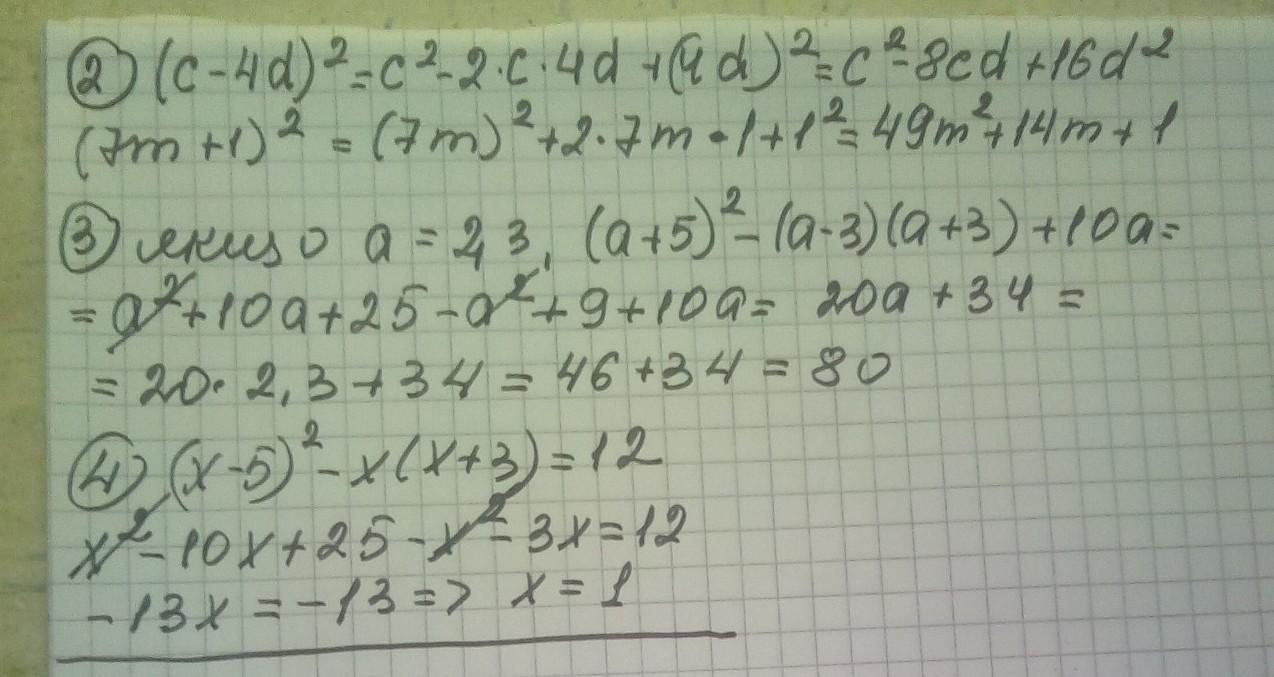 ② (c-4d)² = c² - 2·c·4d + (4d)² = c² - 8cd + 16d²
(7m+1)² = (7m)² + 2·7m·1 + 1² = 49m² + 14m + 1
③ якщо a = 2,3, (a+5)² - (a-3)(a+3) + 10a =
= a² + 10a + 25 - a² + 9 + 10a = 20a + 34 =
= 20·2,3 + 34 = 46 + 34 = 80
④ (x-5)² - x(x+3) = 12
x² - 10x + 25 - x² - 3x = 12
-13x = -13 => x = 1